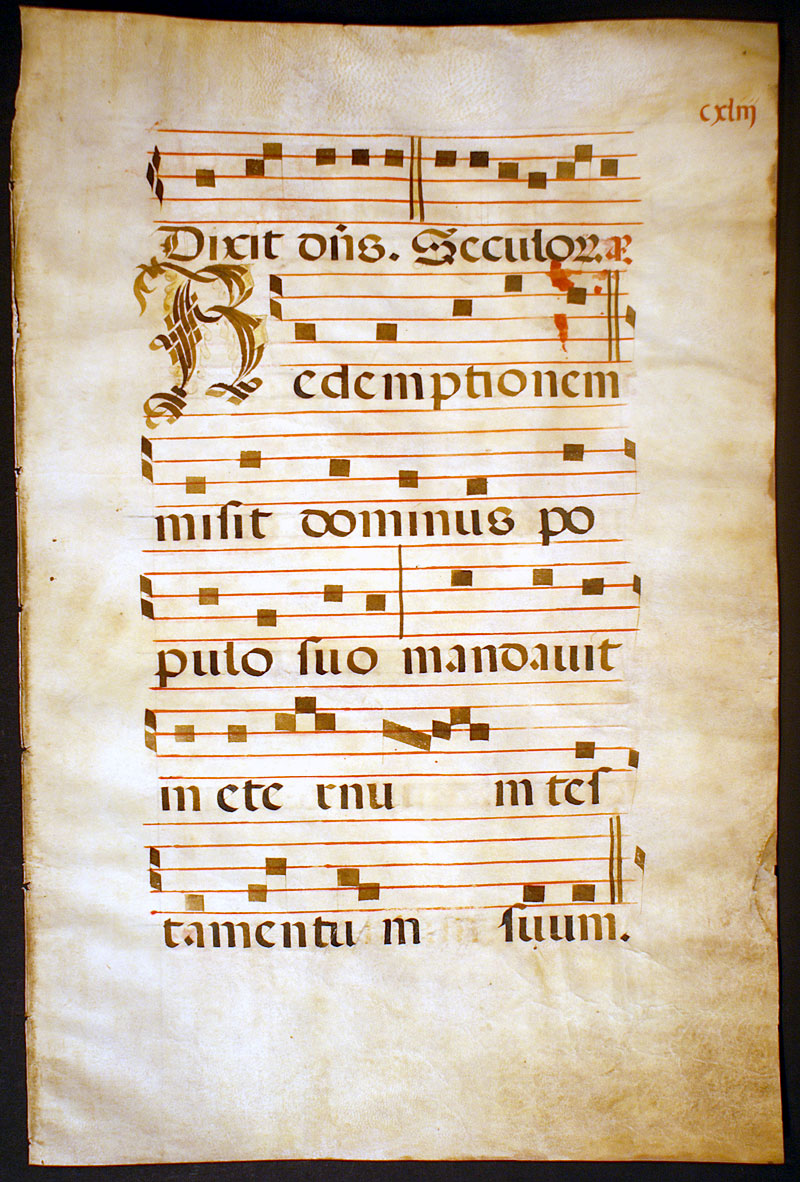 cxliij
Dixit dñs. Seculoꝝ. Æ.
Redemptionem
misit dominus po
pulo suo mandauit
in ete rnu m tes
tamentu m suum.